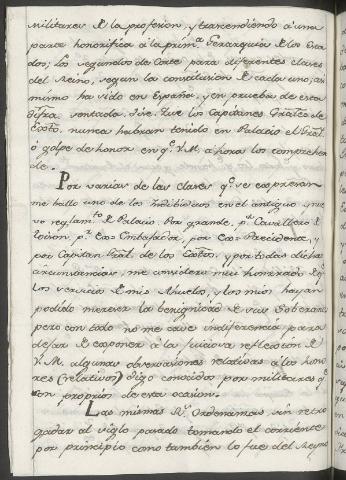 militares de la profesion, y trascendiendo á una
parte honorifica á la prim.ª Gerarquia de los Esta-
dos; los segundos de Corte para diferentes clases
del Reino, segun la constitucion de cada uno; asi
mismo ha sido en España, y en prueba de esta
sentada, dire: Que los Capitanes Grales de
Exto. nunca habian tenido en Palacio el
ó golpe de honor en q.e V.M. ahora los comprehen-
de.
Por varias de las clases q.e se expresan
me hallo uno de los Individuos en el antiguo, y nue-
vo reglam.to de Palacio. Por grande, p.r Cavallero de
Toison, p.r Ex-Embajador, por Ex-Presidente, y
por Capitan Gral. de los Extos, y por todas dichas
circunstancias, me considero mui honrado de q.e
los servicios de mis Abuelos, y los mios hayan
podido merecer la benignidad de sus Soberanos
pero con todo no me cave indiferencia para
dejar de exponer á la juiciosa reflexion de
V.M. algunas observaciones relativas á los hono-
res (relativos) digo conocidos por militares q.e
son proprios de esta ocasion.
Las mismas R.s Ordenanzas, sin retro-
gadar al siglo pasado tomando el corriente
por principio como tambien lo fue del Reyno